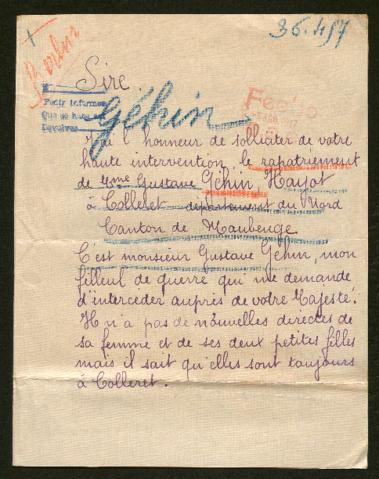 Berlin
36.457
Sire
Pedir informes
Géhin
Fecho
J'ai l'honneur de solliciter de votre
haute intervention, le rapatriement
de Mme Gustave Géhin, Hayot
à Colleret département du Nord
Canton de Maubeuge
C'est monsieur Gustave Géhin, mon
filleul de guerre qui me demande
d'intercéder auprès de votre Majesté.
Il n'a pas de nouvelles directes de
sa femme et de ses deux petites filles
mais il sait qu'elles sont toujours
à Colleret.